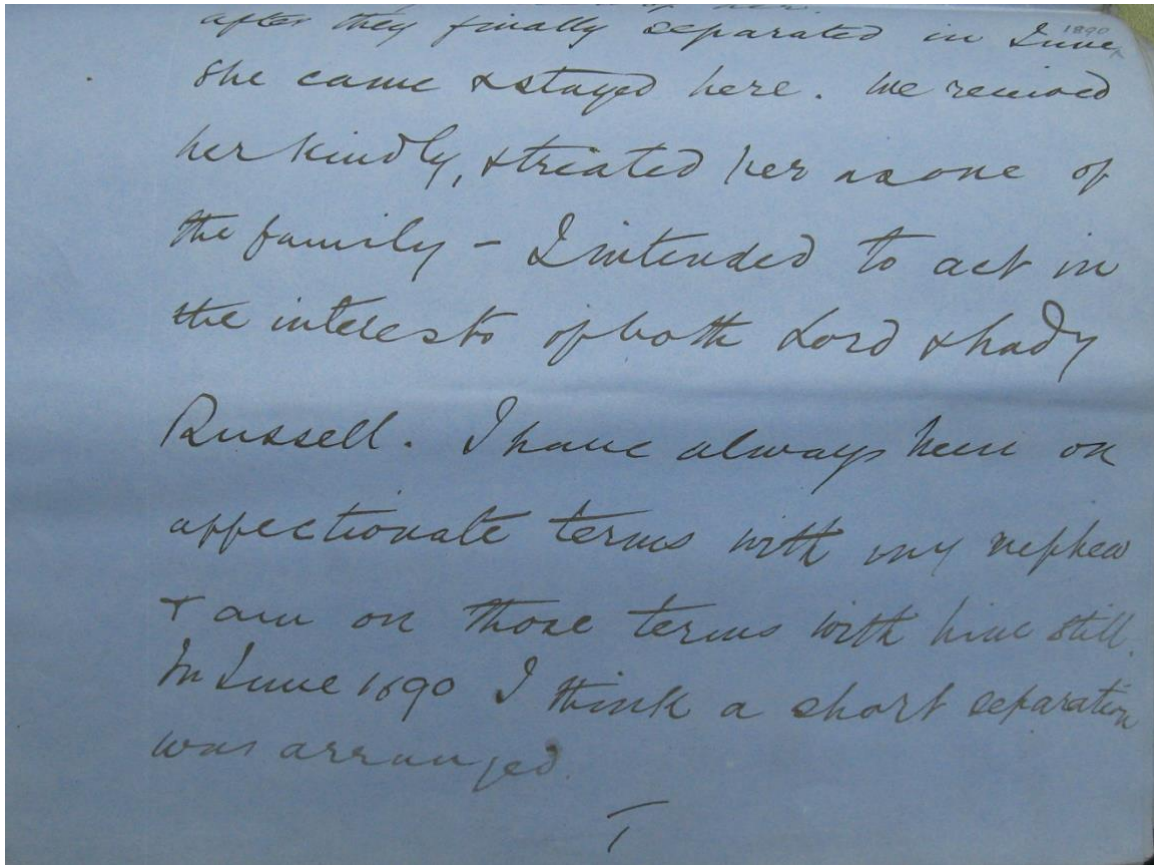 her.
1890
after they finally separated in June
she came & stayed here. We received
her kindly, & treated her as one of
the family - I intended to act in
the interests of both Lord & Lady
Russell. I have always been on
affectionate terms with my nephew
& am on those terms with him still.
In June 1890 I think a short separation
was arranged.